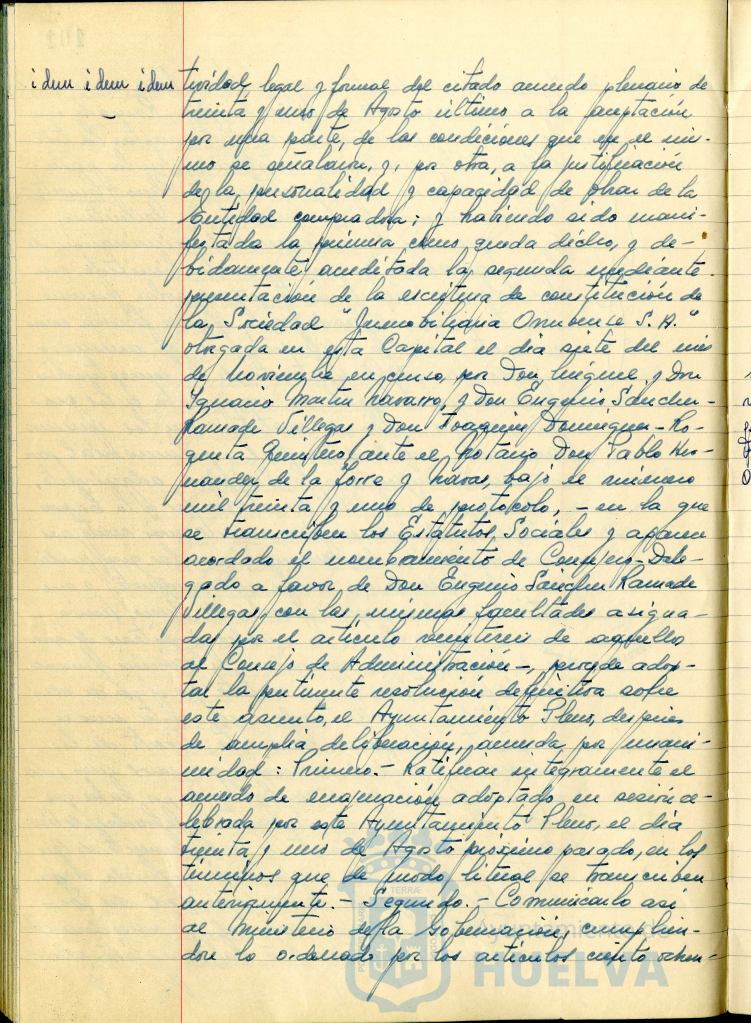 idem idem idem
tividad legal y formal del citado acuerdo plenario de
treinta y uno de Agosto último a la aceptación
por una parte, de las condiciones que en el mis-
mo se señalaron, y, por otra, a la justificación
de la personalidad y capacidad de obrar de la
Entidad compradora; y habiendo sido mani-
festada la primera como queda dicho, y de-
bidamente acreditada la segunda mediante
presentación de la escritura de constitución de
la Sociedad "Inmobiliaria Onubense S.A."
otorgada en esta Capital el dia siete del mes
de noviembre en curso, por Don Miguel y Don
Ignacio Martin Navarro, y Don Eugenio Sánchez-
Ramade Villegas y Don Joaquin Dominguez-Ro-
queta Quintero, ante el Notario Don Pablo
de la Torre y bajo el número
mil treinta y uno de protocolo, - en la que
se transcriben los Estatutos Sociales y aparece
acordado el nombramiento de Consejero-Dele-
gado a favor de Don Eugenio Sánchez Ramade
Villegas, con las mismas facultades asigna-
das por el artículo de aquellos
al Consejo de Administración -, procede adop-
tar la pertinente resolución definitiva sobre
este asunto, el Ayuntamiento Pleno, despues
de amplia deliberación, acuerda por unani-
midad: Primero.- Ratificar integramente el
acuerdo de enajenación adoptado en sesión ce-
lebrada por este Ayuntamiento Pleno, el día
treinta y uno de Agosto próximo pasado, en los
términos que de modo literal se transcriben
anteriormente.- Segundo.- Comunicarlo asi
al Ministerio de la Gobernación, cumplien-
dose lo ordenado por los artículos ciento ochen-
Ayuntamiento de
HUELVA